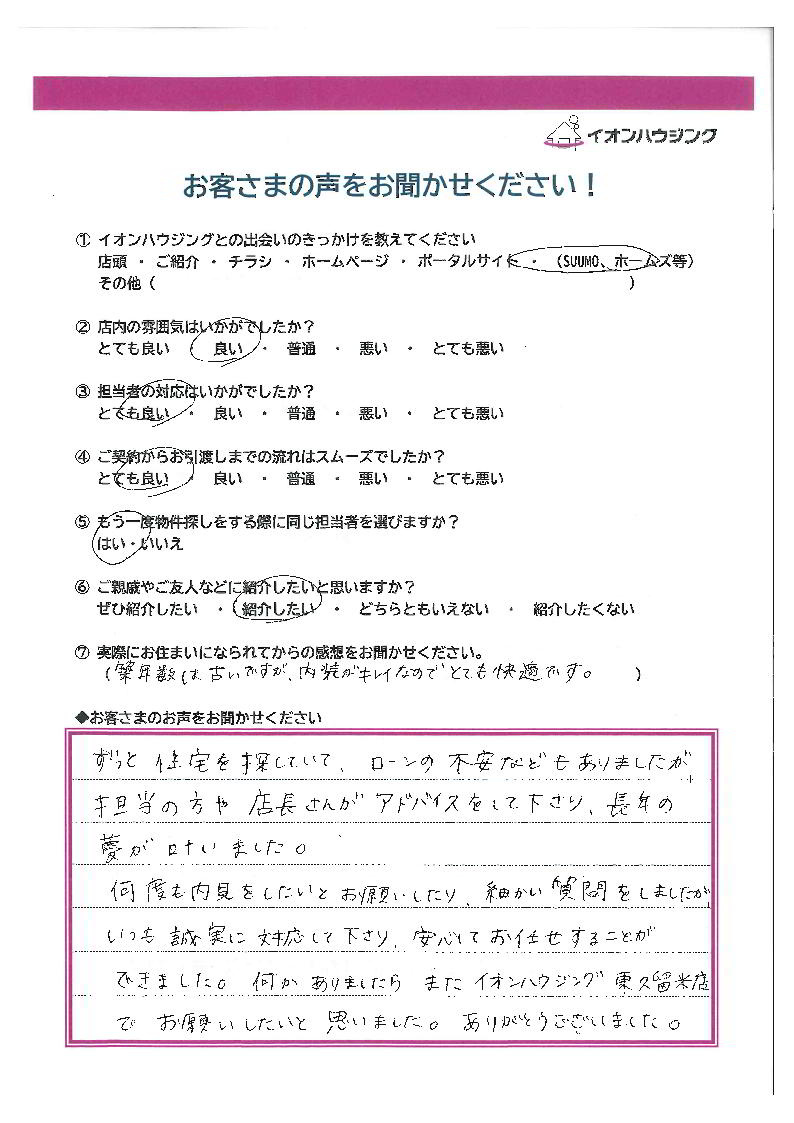 イオンハウジング
お客さまの声をお聞かせください！
① イオンハウジングとの出会いのきっかけを教えてください
店頭 ・ ご紹介 ・ チラシ ・ ホームページ ・ ポータルサイト ・ （SUUMO、ホームズ等）
その他（ ）
② 店内の雰囲気はいかがでしたか？
とても良い ・ 良い ・ 普通 ・ 悪い ・ とても悪い
③ 担当者の対応はいかがでしたか？
とても良い ・ 良い ・ 普通 ・ 悪い ・ とても悪い
④ ご契約からお引渡しまでの流れはスムーズでしたか？
とても良い ・ 良い ・ 普通 ・ 悪い ・ とても悪い
⑤ もう一度物件探しをする際に同じ担当者を選びますか？
はい・いいえ
⑥ ご親戚やご友人などに紹介したいと思いますか？
ぜひ紹介したい ・ 紹介したい ・ どちらともいえない ・ 紹介したくない
⑦ 実際にお住まいになられてからの感想をお聞かせください。
（築年数は古いですが、内装がキレイなのでとても快適です。 ）
◆お客さまのお声をお聞かせください
ずっと住宅を探していて、ローンの不安などもありましたが
担当の方や店長さんがアドバイスをして下さり、長年の
夢が叶いました。
何度も内見をしたいとお願いしたり、細かい質問をしましたが
いつも誠実に対応して下さり、安心してお任せすることが
できました。何かありましたらまたイオンハウジング東久留米店
でお願いしたいと思いました。ありがとうございました。